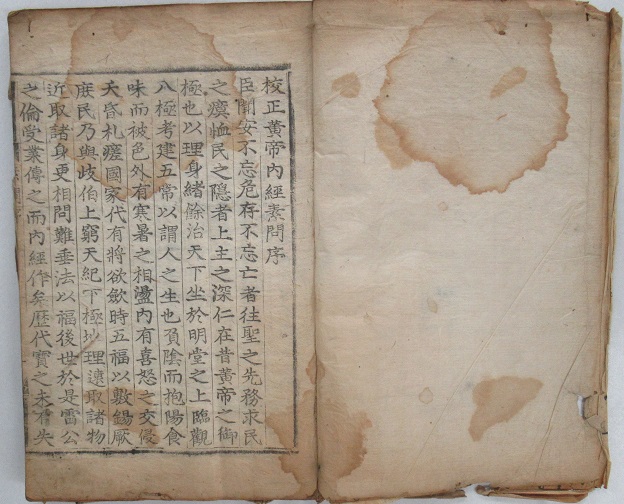 校正黃帝內經素問序
臣聞安不忘危存不忘亡者往聖之先務求民
之瘼恤民之隱者上主之深仁在昔黃帝之御
極也以理身緒餘治天下坐於明堂之上臨觀
八極考建五常以謂人之生也負陰而抱陽食
味而被色外有寒暑之相盪內有喜怒之交侵
夭昏札瘥國家代有將欲歛時五福以敷錫厥
庶民乃與歧伯上窮天紀下極地理遠取諸物
近取諸身更相問難垂法以福後世於是雷公
之倫受業傳之而內經作矣歷代寶之未有失